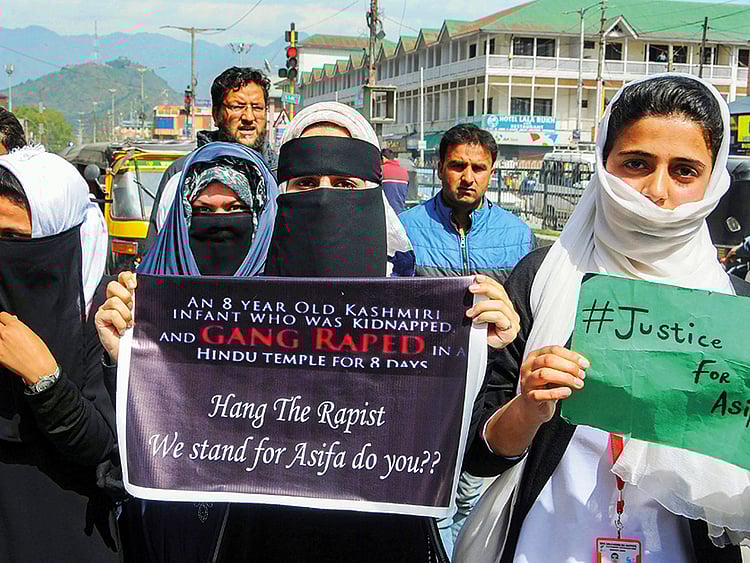 An 8 Year Old Kashmiri
infant who was Kidnapped,
and Gang Raped in a
Hindu temple for 8 days
Hang The Rapist
We stand for Asifa do you??
#Justice
For
Asif
HOTEL LALA RUKH
RESTAURANT